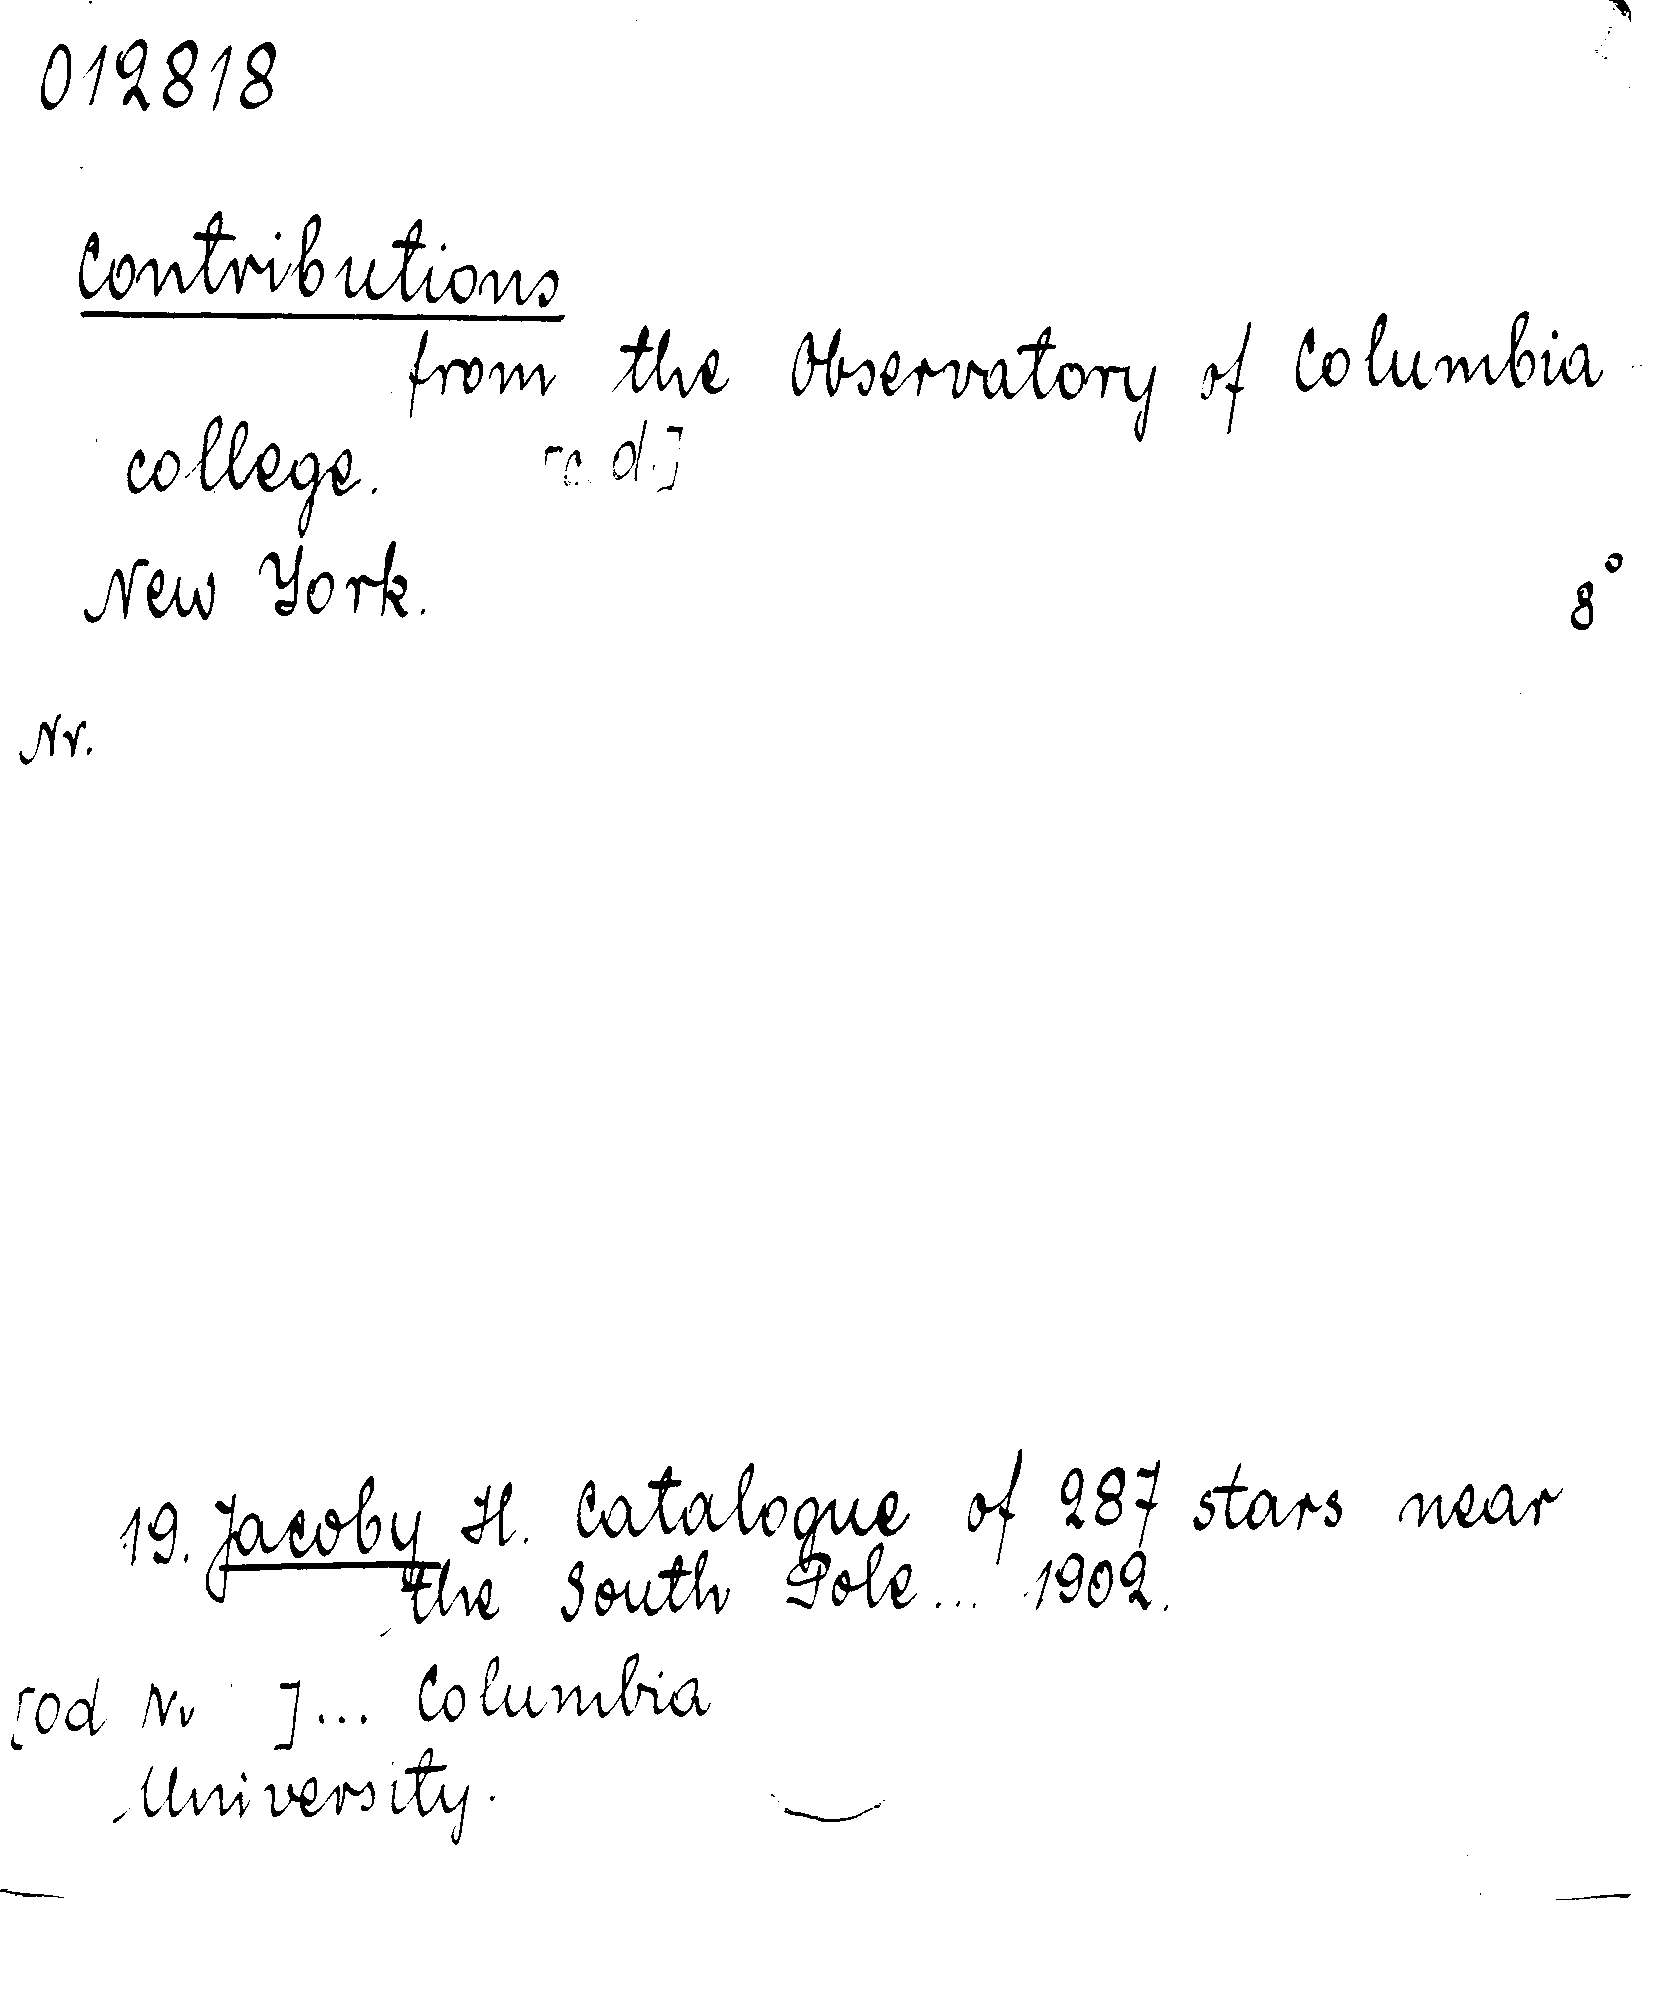 012818
Contributions
from the Observatory of Columbia
college. [c.d.]
New York. 8°
Nr.
19. Jacoby H. Catalogue of 287 stars near
the South Pole... 1902.
[Od Nr ]... Columbia
University.